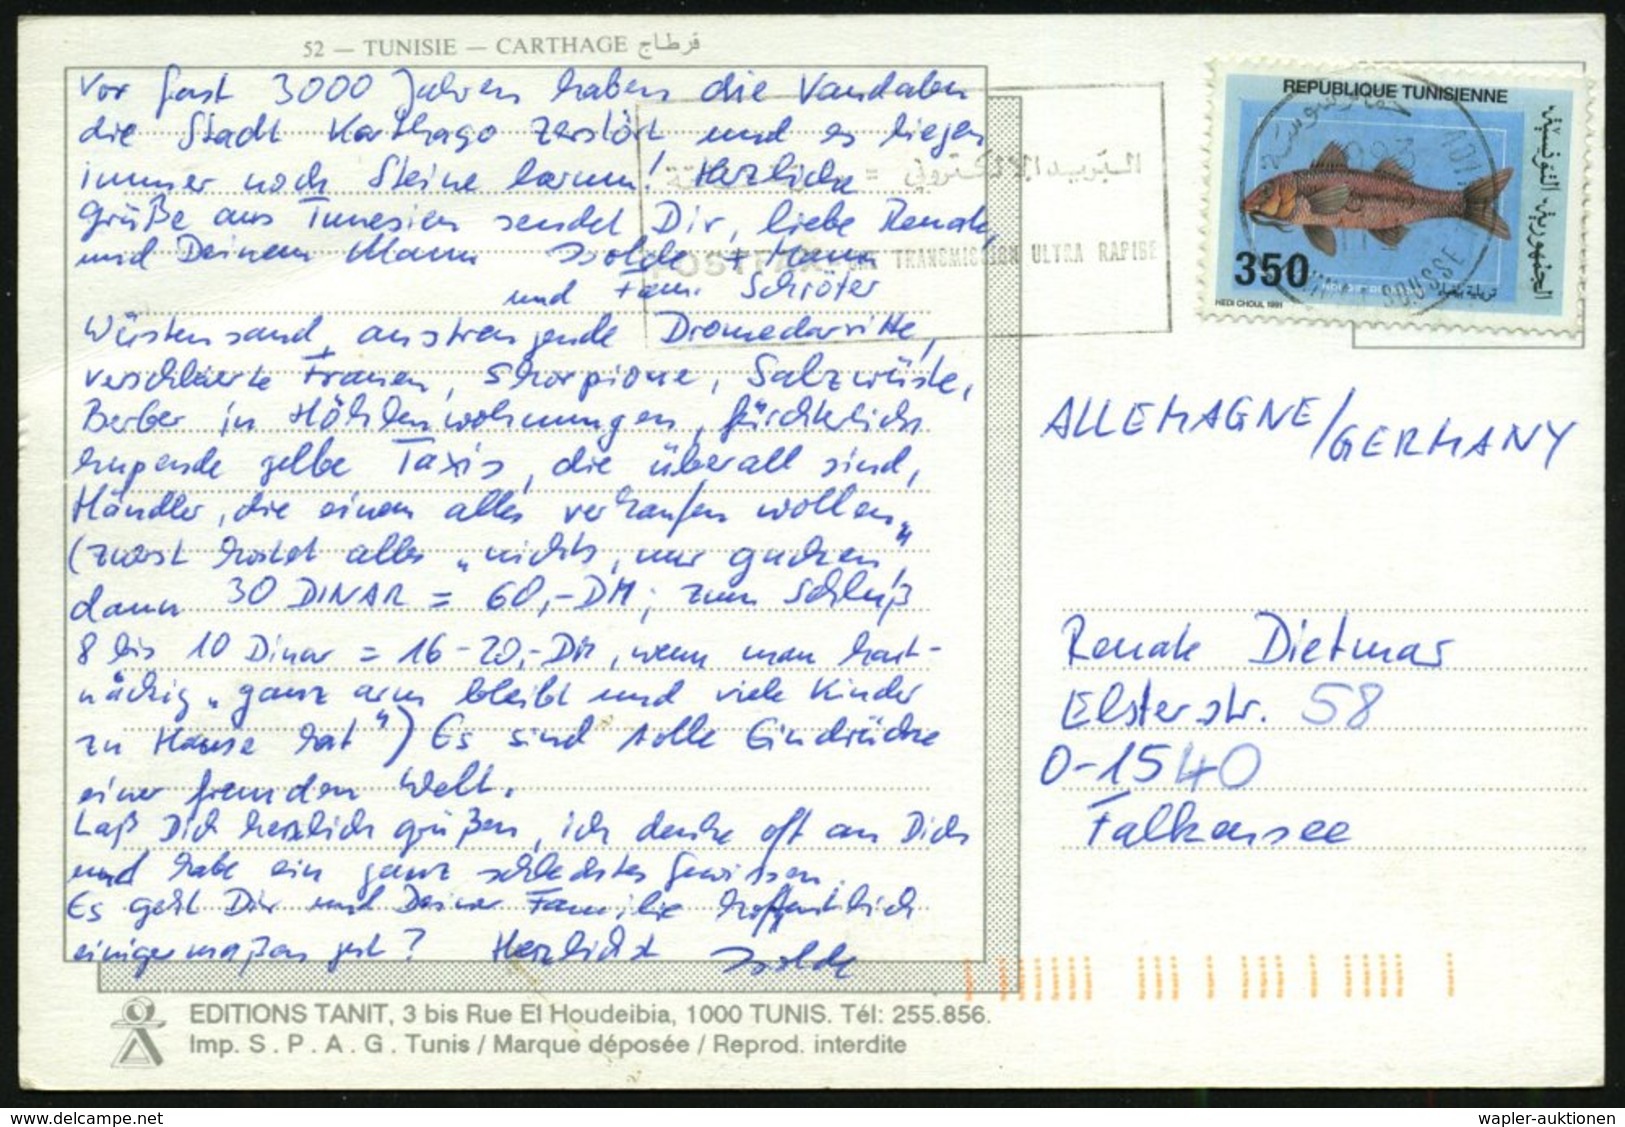 52 — TUNISIE — CARTHAGE قرطاج
Vor fast 3000 Jahren haben die Vandalen
die Stadt Karthago zerstört und es liegen
immer noch Steine herum! Herzliche
Grüße aus Tunesien sendet Dir, liebe Renate,
und Deinem Mann Isolde + Mann
und Fam. Schröter
Wüstensand, anstrengende Dromedarritte,
verschleierte Frauen, Skorpione, Salzwüste,
Berber in Höhlenwohnungen, fürchterlich
hupende gelbe Taxis, die überall sind,
Händler, die einem alles verkaufen wollen
(zuerst kostet alles „nichts, nur gucken",
dann 30 DINAR = 60,-DM; zum Schluß
8 bis 10 Dinar = 16-20,-DM, wenn man hart-
näckig „ganz arm bleibt und viele Kinder
zu Hause hat") Es sind tolle Eindrücke
einer fremden Welt.
Laß Dich herzlich grüßen, ich denke oft an Dich
und habe ein ganz schlechtes Gewissen.
Es geht Dir und Deiner Familie hoffentlich
einigermaßen gut? Herzlichst Isolde
EDITIONS TANIT, 3 bis Rue El Houdeibia, 1000 TUNIS. Tél: 255.856.
Imp. S.P.A.G. Tunis / Marque déposée / Reprod. interdite
البريد الإلكتروني =
POSTFAX: TRANSMISSION ULTRA RAPIDE
REPUBLIQUE TUNISIENNE
الجمهورية التونسية
350
HEDI CHOUL 1991
SOUSSE
ALLEMAGNE/GERMANY
Renate Dietmar
Elsterstr. 58
O-1540
Falkensee
wapler-auktionen